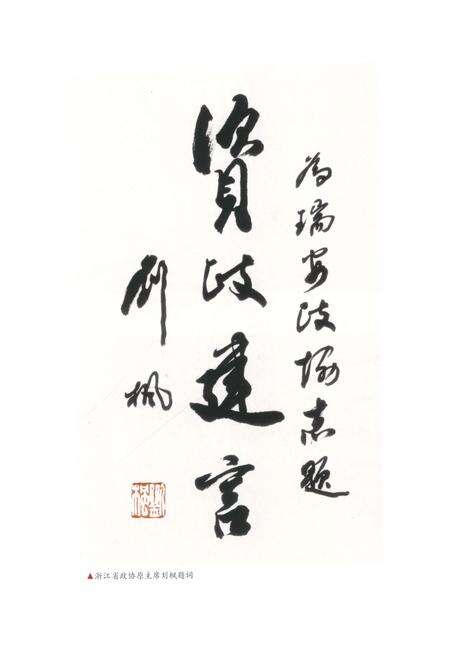 为瑞安政协志题
资政建言
刘枫
▲浙江省政协原主席刘枫题词